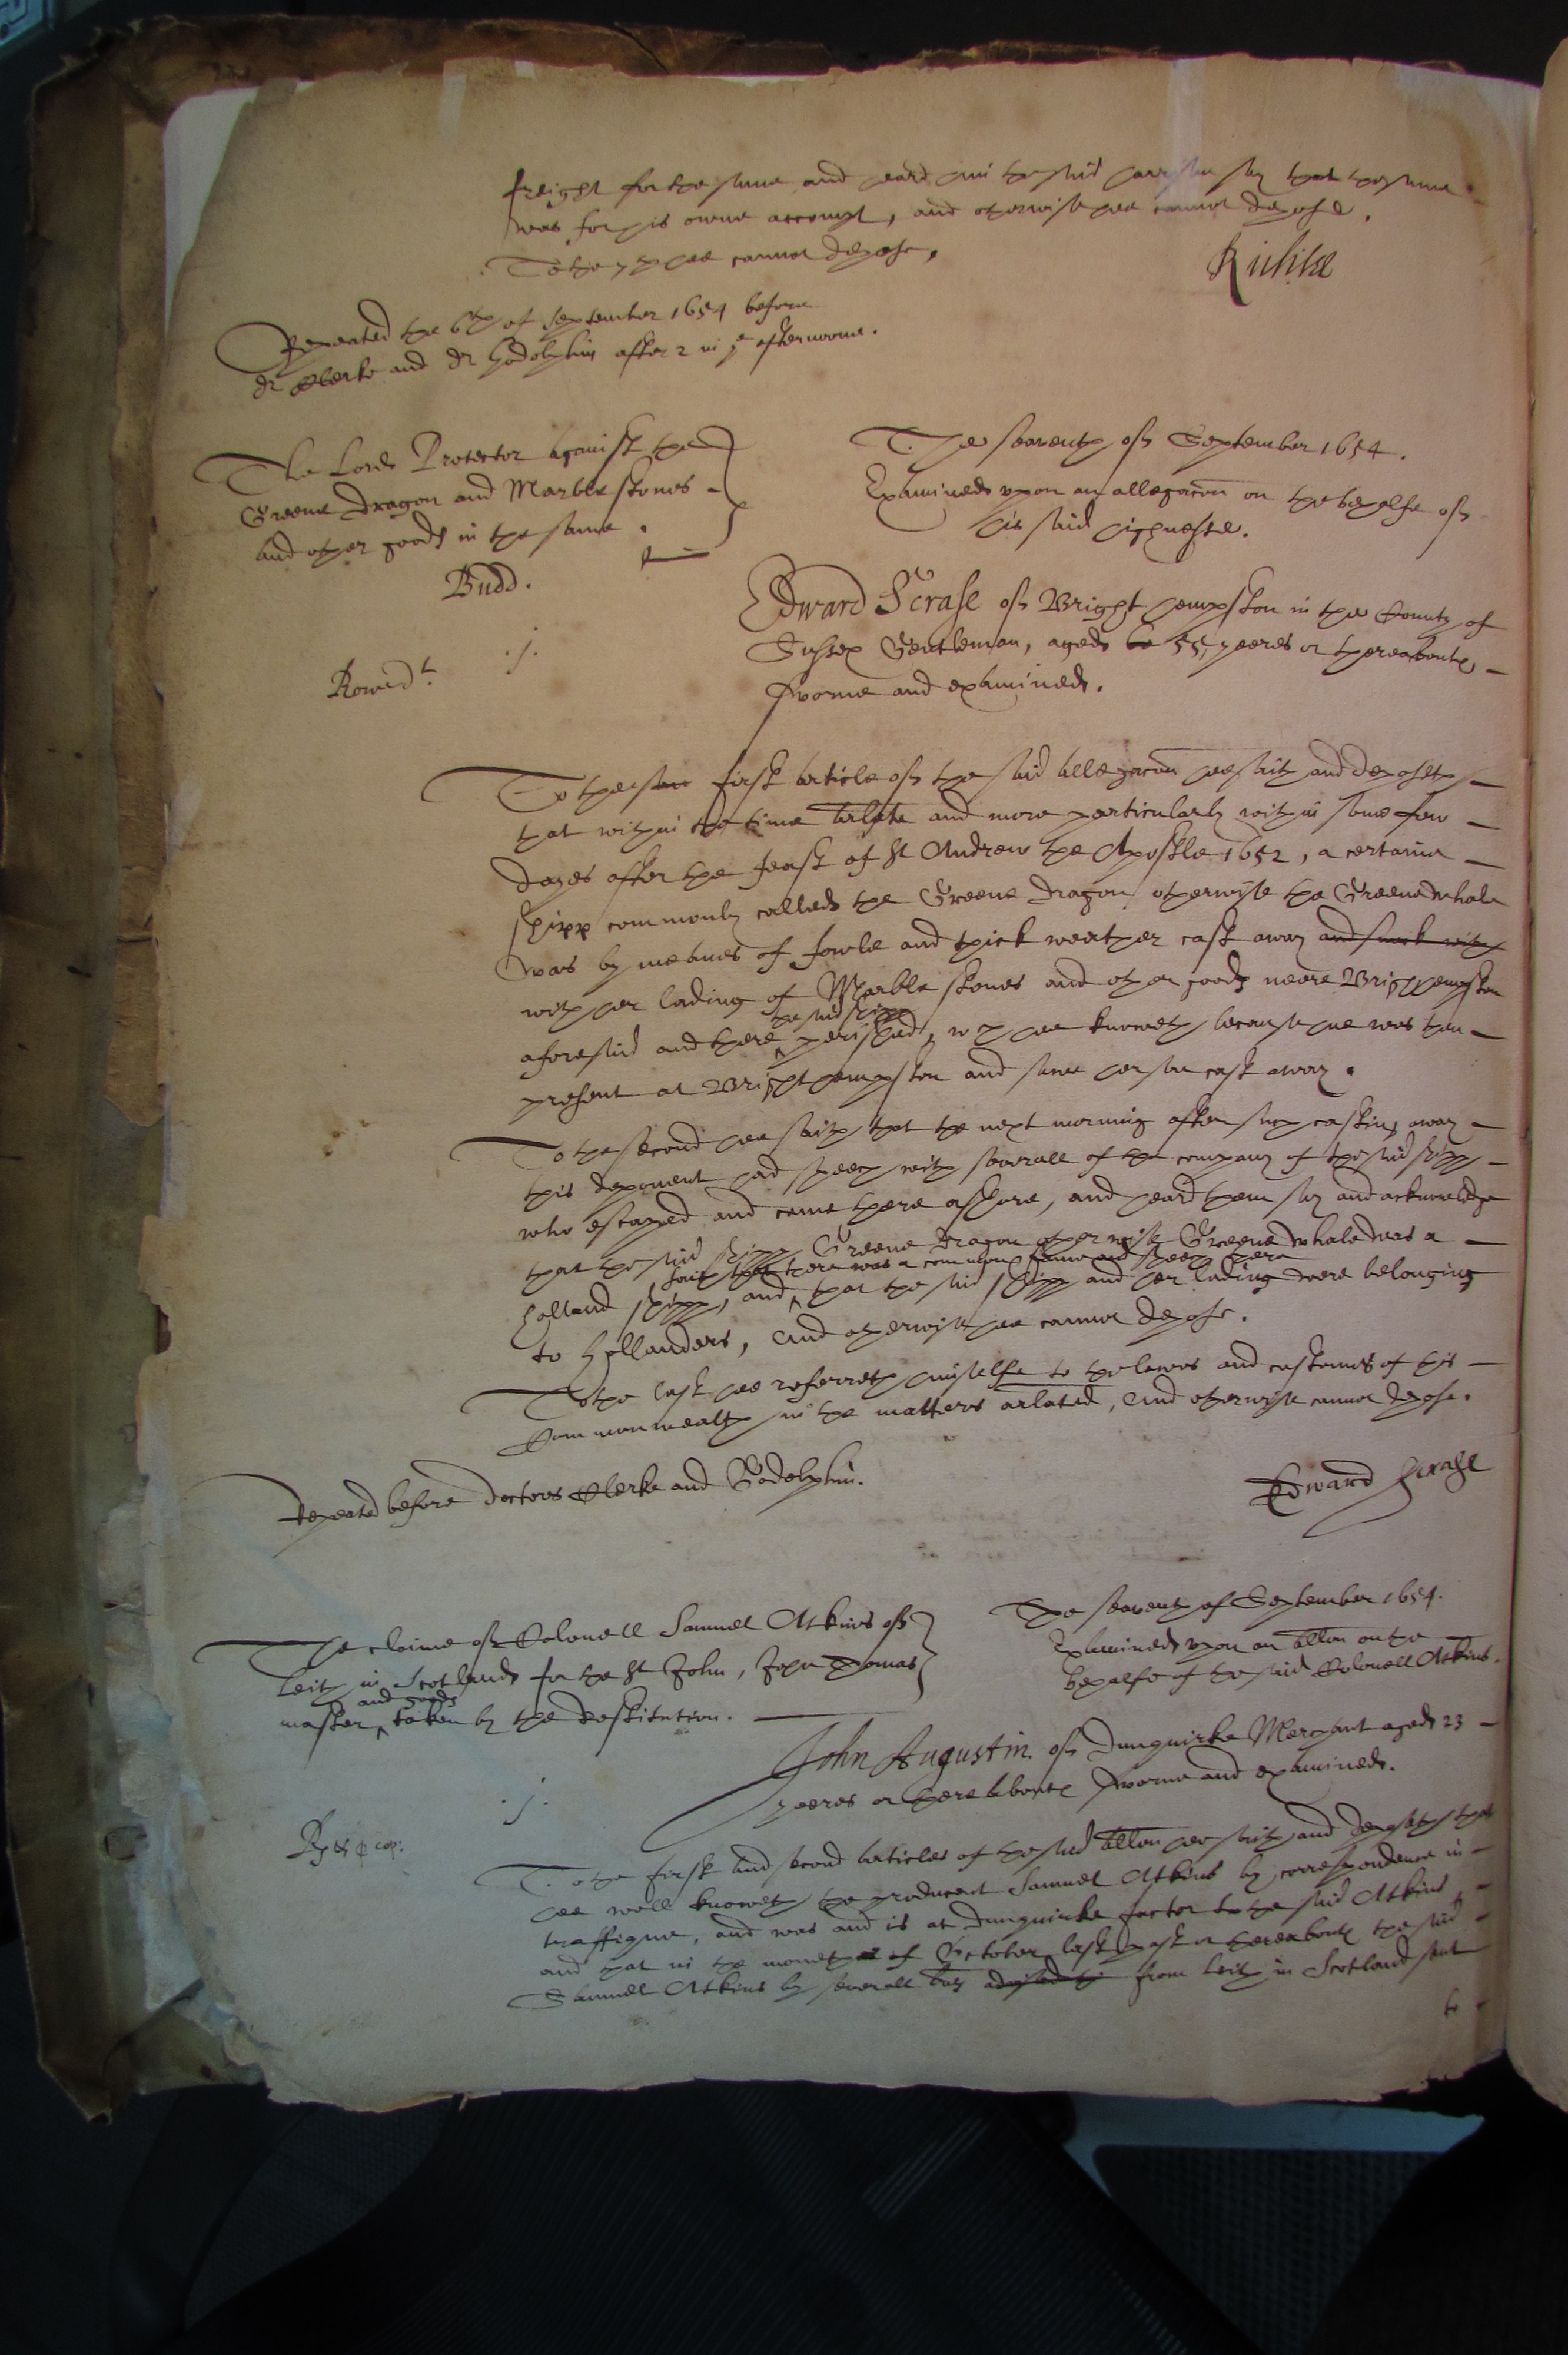 freight for the same and heard him the said say that the same
was for his owne accompt, and otherwise hee cannot depose.
To the hee cannot depose.
Repeated the 6th of September 1654 before
dr Clerke and dr Godolphin after 2 in ye afternoone.
The Lord Protector against the
Greene dragon and Marble stones
and other goods in the same.
Budd.
The seaventh of September 1654.
Examined upon an allegacon on the behalfe of
his said highnesse.
.j.
Edward Scrase of Brighthempston in the County of
Sussex Gentleman, aged 55 yeeres or thereaboute
sworne and examined.
To the first article of the said allegacon hee saith and deposeth
that within the time arlate and more particularly within some few
dayes after the feast of St Andrew the Apostle 1652, a certaine
shipp commonly called the Greene dragon otherwise the Greene whale
was by meanes of fowle and thick weather cast away and sunck with
with her lading of Marble stones and other goods neere Brighthempston
the said shipp
aforesaid and there perished, wch hee knoweth because he was then
present at Brighthempston and sawe her soe cast away.
To the second hee saith that the next morning after such casting away
this deponent had speech with severall of the company of the said shipp
who escaped and came there ashore, and heard them say and acknowledge
that the said shipp Greene dragon otherwise Greene whale was a
saith that there was a common fame and speech there
Holland shipp, and that the said shipp and her lading were belonging
to Hollanders, And otherwise hee cannot depose.
To the last hee referreth himselfe to the lawes and customes of this
Commonwealth in the matters arlated, And otherwise cannot depose.
Repeated before doctors Clerke and Godolphin.
Edward Scrase
The claime of Colonell Samuel Atkins of
Leith in Scotland for the St John, John Thomas
and goods
master, taken by the Restitution.
The seaventh of September 1654.
Examined upon an allon on the
behalfe of the said Colonell Atkins.
.j.
John Augustin of Dunquirke Merchant aged 23
yeeres or thereaboute sworne and examined.
To the first and second articles of the said allon hee saith and deposeth that
hee well knoweth the producent Samuel Atkins by correspondence in
traffique, and was and is at Dunquirke factor to the said Atkins,
and that in the moneth of October last past or thereaboute the said
Samuel Atkins by severall from Leith in Scotland sent
to